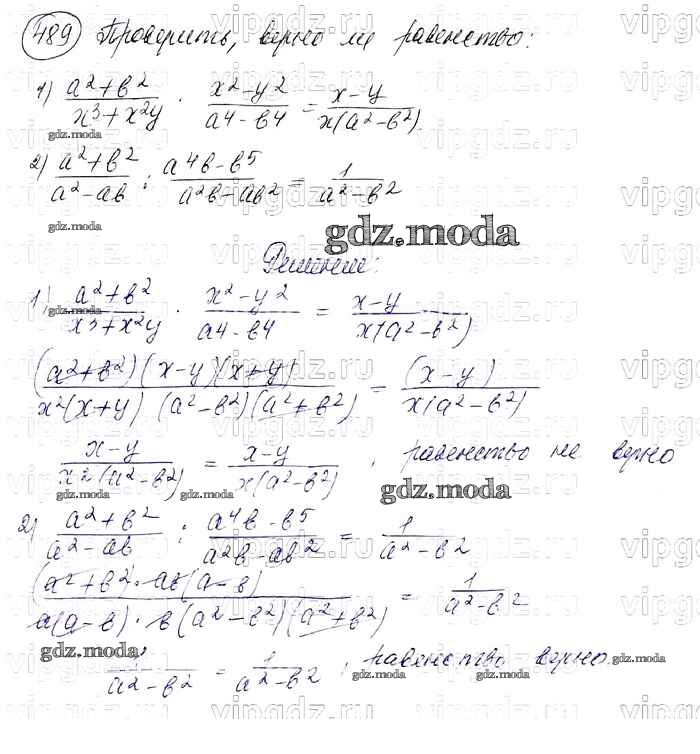 489 Проверить, верно ли равенство:
1) (a²+b²)/(x³+x²y) · (x²-y²)/(a4-b4) = (x-y)/(x(a²-b²))
gdz.moda
2) (a²+b²)/(a²-ab) : (a4b-b5)/(a²b-ab²) = 1/(a²-b²)
gdz.moda
gdz.moda
Решение:
1) (a²+b²)/(x3+x²y) · (x²-y²)/(a4-b4) = (x-y)/(x(a²-b²))
gdz.moda
((a²+b²)(x-y)(x+y))/(x²(x+y)(a²-b²)(a²+b²)) = (x-y)/(x(a²-b²))
(x-y)/(x²(a²-b²)) = (x-y)/(x(a²-b²)) , равенство не верно
gdz.moda gdz.moda gdz.moda
2) (a²+b²)/(a²-ab) : (a4b-b5)/(a²b-ab²) = 1/(a²-b²)
((a²+b²)·ab(a-b))/(a(a-b)·b(a²-b²)(a²+b²)) = 1/(a²-b²)
1/(a²-b²) = 1/(a²-b²) ; равенство верно.
gdz.moda gdz.moda gdz.moda gdz.moda
vipgdz.ru